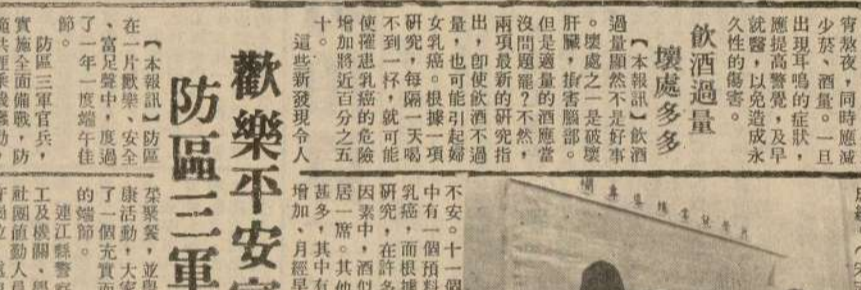 宵熬夜，同時應減
少菸、酒量。一旦
出現耳鳴的症狀，
應提高警覺，及早
就醫，以免造成永
久性的傷害。
飲酒過量
壞處多多
【本報訊】飲酒
過量顯然不是好事
。壞處之一是破壞
肝臟，損害腦部。
但是適量的酒應當
沒問題罷？不然，
兩項最新的研究指
出，卽使飲酒不過
量，也可能引起婦
女乳癌。根據一項
研究，每隔一天喝
不到一杯，就可能
使罹患乳癌的危險
增加將近百分之五
十。
這些新發現令人
不安。十一個
中有一個預料
乳癌，而根據
研究，在許多
因素中，酒似
居一席。其他
甚多，其中有
增加、月經早
歡樂平安
防區三軍
【本報訊】防區
在一片歡樂、安全
、富足聲中，度過
了一年一度端午佳
節。
防區三軍官兵，
實施全面備戰，防
聚餐，並
康活動，大家
了一個充實而
的端節。
連江縣警察
工及機關、學
社團值勤人員